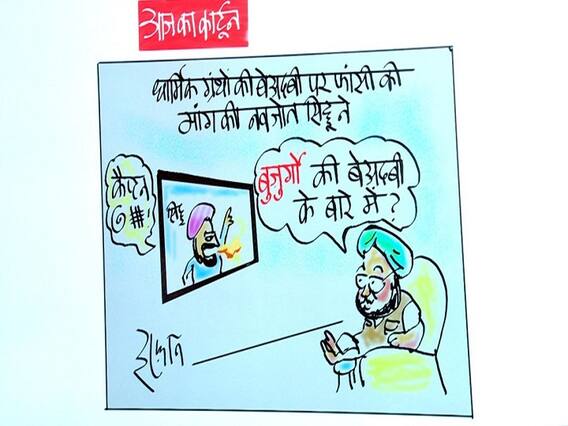 आज का कार्टून
धार्मिक ग्रंथों की बेअदबी पर फांसी की
मांग की नवजोत सिद्धू ने
कैप्टन
@##!
सिद्धू
बुजुर्गों की बेअदबी
के बारे में?
इरफ़ान